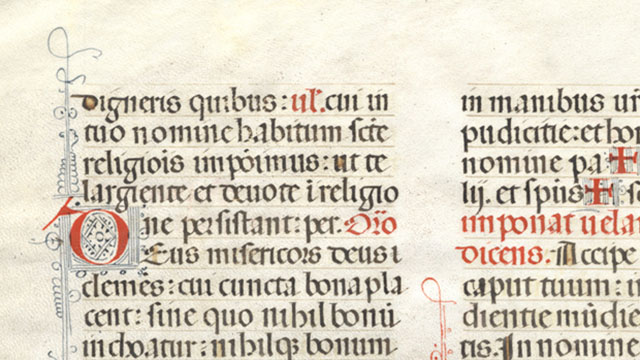 digneris quibus: ul̃. cui in
tuo nomine habitum sct̃e
religiõis impõimus: ut te
largiente et deuote ĩ religio
ne persistant: per. Orõ
DEus misericors deus
clemẽs: cui cuncta bona pla
cent: sine quo nihil bonũ
inchoatur: nihilqꝫ bonum
in manibus
pudicitie: et ho
nomine pa ✠
lij. et spũs ✠
imponat uela
dicens. Accipe
caput tuum: in
dientie mũdie
tis. In nomine